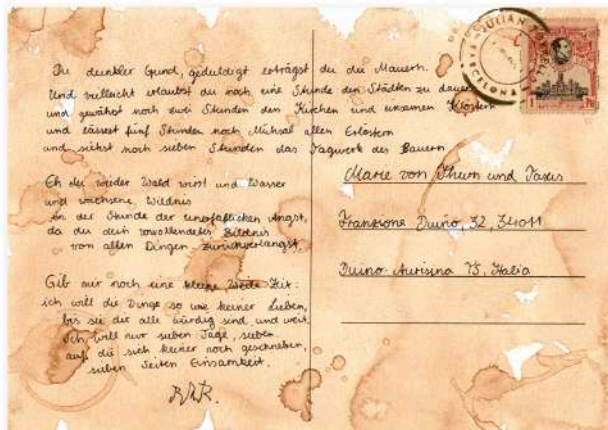 Du dunkler Grund, geduldigt erträgst du die Mauern.
Und vielleicht erlaubst du noch eine Stunde den Städten zu dauern
und gewährst noch zwei Stunden den Kirchen und einsamen Klöstern
und lässest fünf Stunden noch Mühsal allen Erlöstern
und siehst noch sieben Stunden das Tagwerk des Bauern
Eh du wieder Wald wirst und Wasser
und wachsene Wildnis
in der Stunde der unerfaßlichen Angst,
da du dein unvollendetes Bildnis
von allen Dingen zurückverlangst
Gib mir noch eine kleine Weile Zeit:
ich will die Dinge so wie keiner lieben,
bis sie dir alle würdig sind und weit
Ich will nur sieben Tage, sieben
auf die sich keiner noch geschrieben,
sieben Seiten Einsamkeit.
R.M.R.
JULIAN
BARCELONA
1
Marie von Thurn und Taxis
Franzione Duino, 32, 34011
Duino-Aurisina TS, Italia